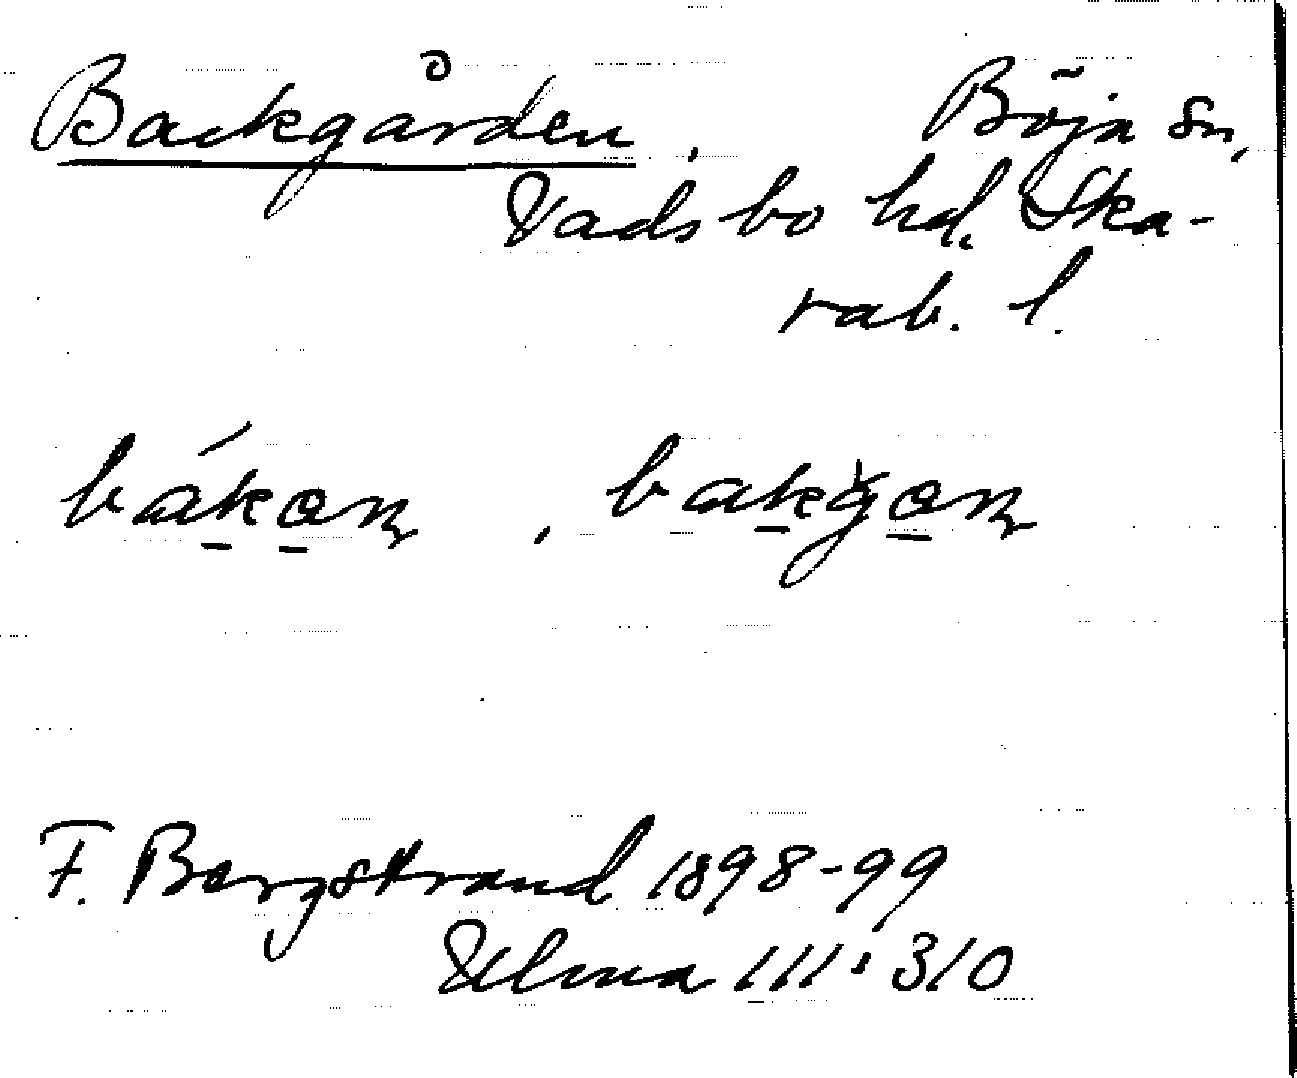 Backgården. Böja sn,
Vadsbo hd. Ska-
rab. l.
bákan, bakgan
F. Bergstrand 1898-99
Ulma 111:310